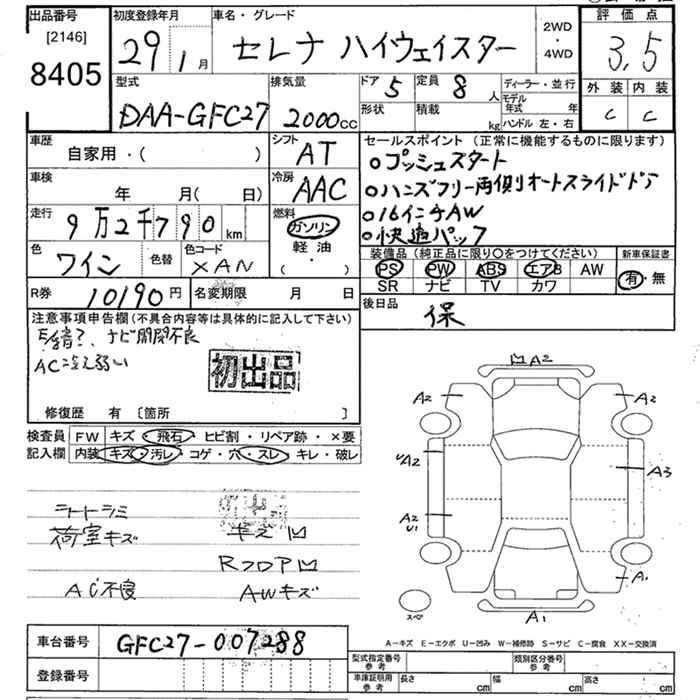 出品番号
[2146]
8405
初度登録年月
29 1月
車名・グレード
セレナ ハイウェイスター
2WD
・
4WD
評価点
3,5
外装 内装
C C
型式
DAA-GFC27
排気量
2000cc
ドア 5
形状
定員 8人
積載 kg
ディーラー・並行
モデル年式 年
ハンドル 左・右
車歴
自家用・( )
シフト
AT
車検
年 月( 日)
冷房
AAC
走行
9万2千790km
燃料
ガソリン
軽油
( ・ )
色
ワイン
色替
色コード
XAN
R券 10190円
名変期限 月 日
セールスポイント(正常に機能するものに限ります)
○プッシュスタート
○ハンズフリー両側オートスライドドア
○16インチAW
○快適パック
装備品(純正品に限り○をつけてください)
PS PW ABS エアB AW
SR ナビ TV カワ
新車保証書
有・無
後日品
保
注意事項申告欄(不具合内容等は具体的に記入して下さい)
ナビ開閉不良
AC冷え弱い
初出品
修復歴 有 [箇所 ]
検査員
記入欄
FW キズ・飛石・ヒビ割・リペア跡・×要
内装 キズ・汚レ・コゲ・穴・スレ・キレ・破レ
シートシミ
荷室キズ
AC不良
初出品
キズ凹
Rフロア凹
AWキズ
A2
A2
A2
A2
A2
U1
A3
A1
A1
スペア
A-キズ E-エクボ U-凹み W-補修跡 S-サビ C-腐食 XX-交換済
車台番号 GFC27-007288
登録番号
型式指定番号
参考
類別区分番号
参考
車庫証明用
参考
長さ cm 幅 cm 高さ cm